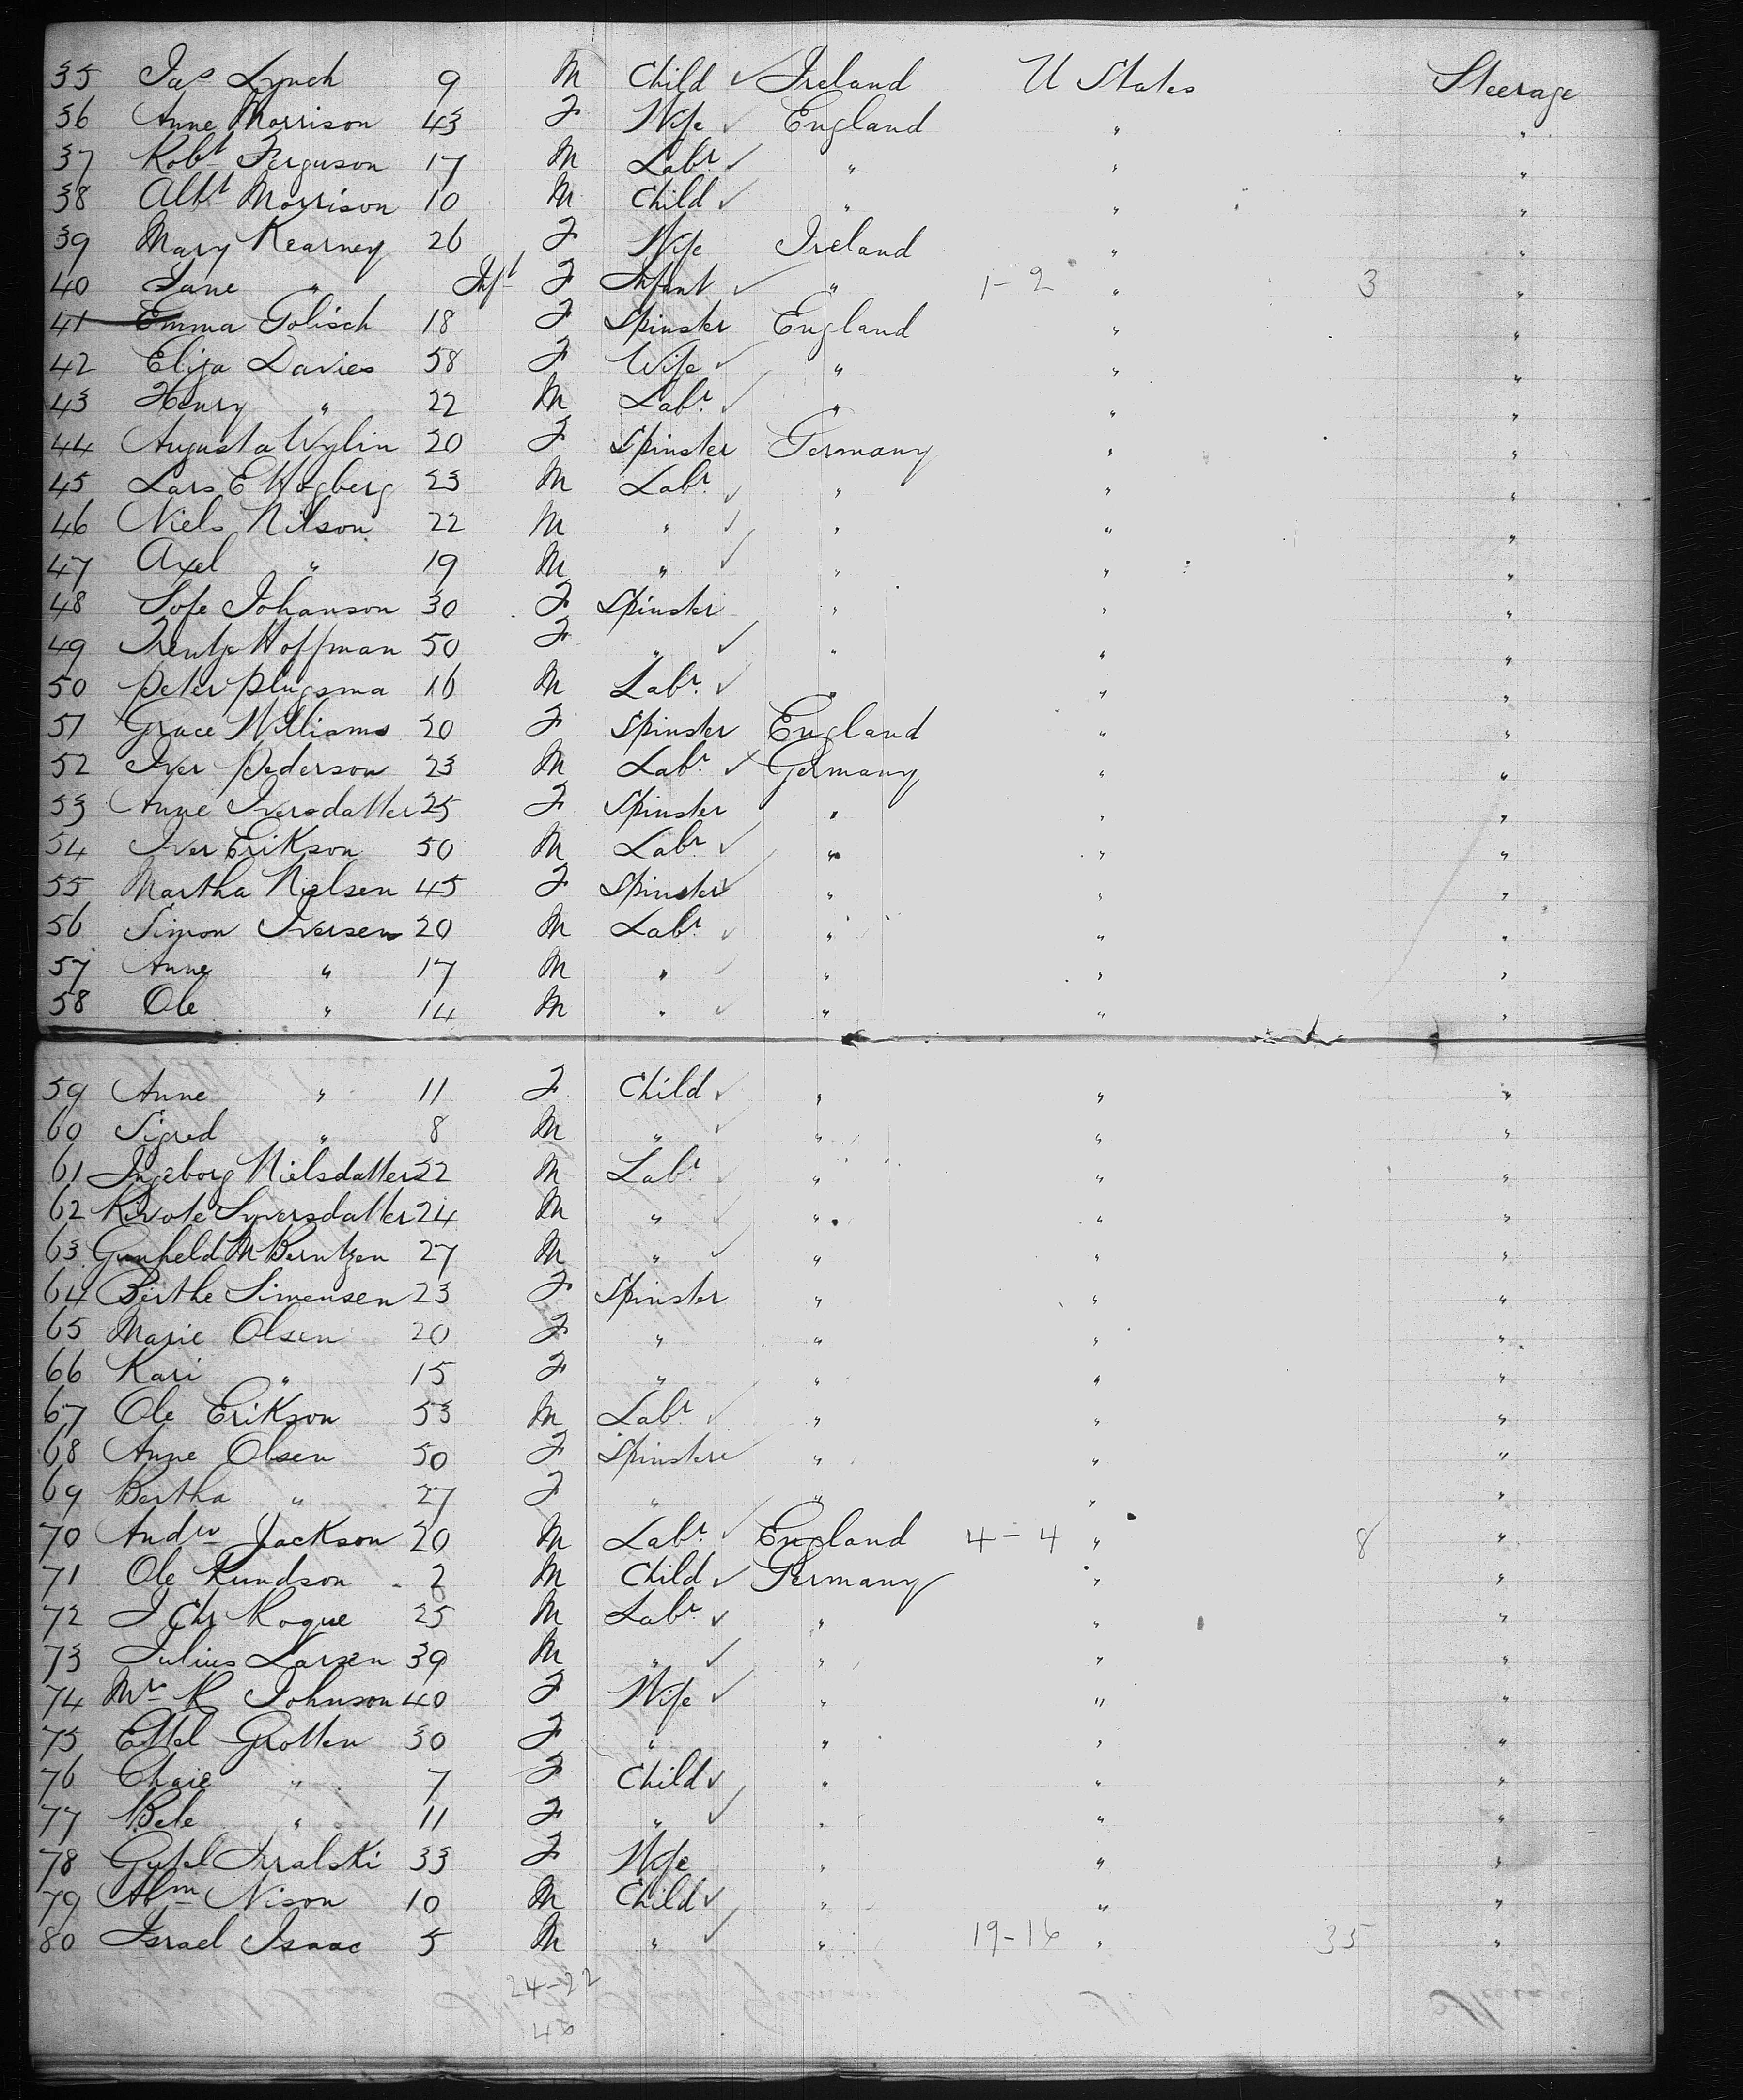 35 Jas Lynch 9 M Child ✓ Ireland U States Steerage
36 Anne Morrison 43 F Wife ✓ England " "
37 Robt Ferguson 17 M Labr ✓ " " "
38 Albt Morrison 10 M Child ✓ " " "
39 Mary Kearney 26 F Wife Ireland " "
40 Jane " Inft F Infant ✓ " 1-2 " 3 "
41 Emma Golisch 18 F Spinster England " "
42 Eliza Davies 58 F Wife ✓ " " "
43 Henry " 22 M Labr ✓ " " "
44 Augusta Wylin 20 F Spinster Germany " "
45 Lars E Hogberg 23 M Labr ✓ " " "
46 Niels Nilson 22 M " ✓ " " "
47 Axel " 19 M " ✓ " " "
48 Sofe Johanson 30 F Spinster " " "
49 Trentje Hoffman 50 F " ✓ " " "
50 Peter Plugsma 16 M Labr ✓ " " "
51 Grace Williams 20 F Spinster England " "
52 Iver Pederson 23 M Labr ✓ Germany " "
53 Anne Iversdatter 25 F Spinster " " "
54 Iver Erikson 50 M Labr ✓ " " "
55 Martha Nielsen 45 F Spinster ✓ " " "
56 Simon Iversen 20 M Labr ✓ " " "
57 Anne " 17 M " ✓ " " "
58 Ole " 14 M " ✓ " " "
59 Anne " 11 F Child ✓ " " "
60 Sigred " 8 M " ✓ " " "
61 Ingeborg Nielsdatter 22 M Labr ✓ " " "
62 Syversdatter 24 M " ✓ " " "
63 Gunheld M Berntzen 27 M " ✓ " " "
64 Birthe Simensen 23 F Spinster " " "
65 Marie Olsen 20 F " " " "
66 Kari " 15 F " " " "
67 Ole Erikson 53 M Labr ✓ " " "
68 Anne Olsen 50 F Spinster ✓ " " "
69 Bertha " 27 F " " " "
70 Andw Jackson 20 M Labr ✓ England 4-4 " 8 "
71 Ole Kundson 2 M Child ✓ Germany " "
72 J Chr Rogue 25 M Labr ✓ " " "
73 Julius Larsen 39 M " ✓ " " "
74 Mrs K Johnson 40 F Wife ✓ " " "
75 Ettel Grotten 30 F " " " "
76 Chaie " 7 F Child ✓ " " "
77 Bele " 11 F " ✓ " " "
78 Gutel 33 F Wife " " "
79 Abm Nison 10 M Child ✓ " " "
80 Israel Isaac 5 M " ✓ " 19-16 " 35 "
24-22
46